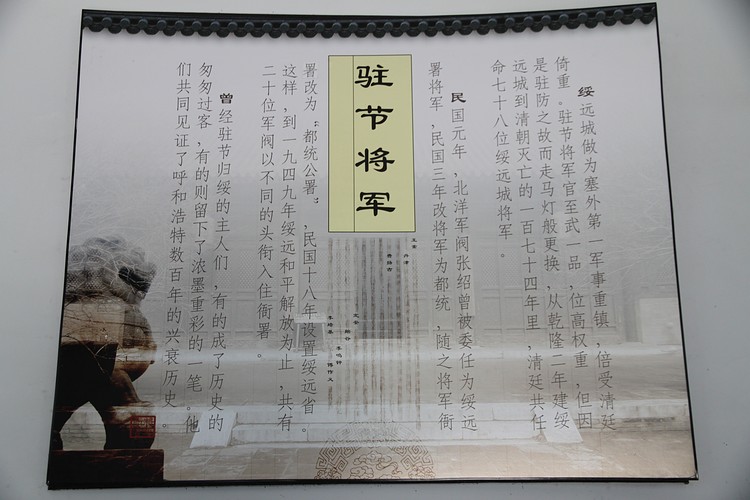 绥远城做为塞外第一军事重镇，倍受清廷
倚重。驻节将军官至武一品，位高权重，但因
是驻防之故而走马灯般更换，从乾隆二年建绥
远城到清朝灭亡的一百七十四年里，清廷共任
命七十八位绥远城将军。
民国元年，北洋军阀张绍曾被委任为绥远
署将军，民国三年改将军为都统，随之将军衙
驻节将军
署改为“都统公署”，民国十八年设置绥远省。
这样，到一九四九年绥远和平解放为止，共有
二十位军阀以不同的头衔入住衙署。
曾经驻节归绥的主人们，有的成了历史的
匆匆过客，有的则留下了浓墨重彩的一笔。他
们共同见证了呼和浩特数百年的兴衰历史。